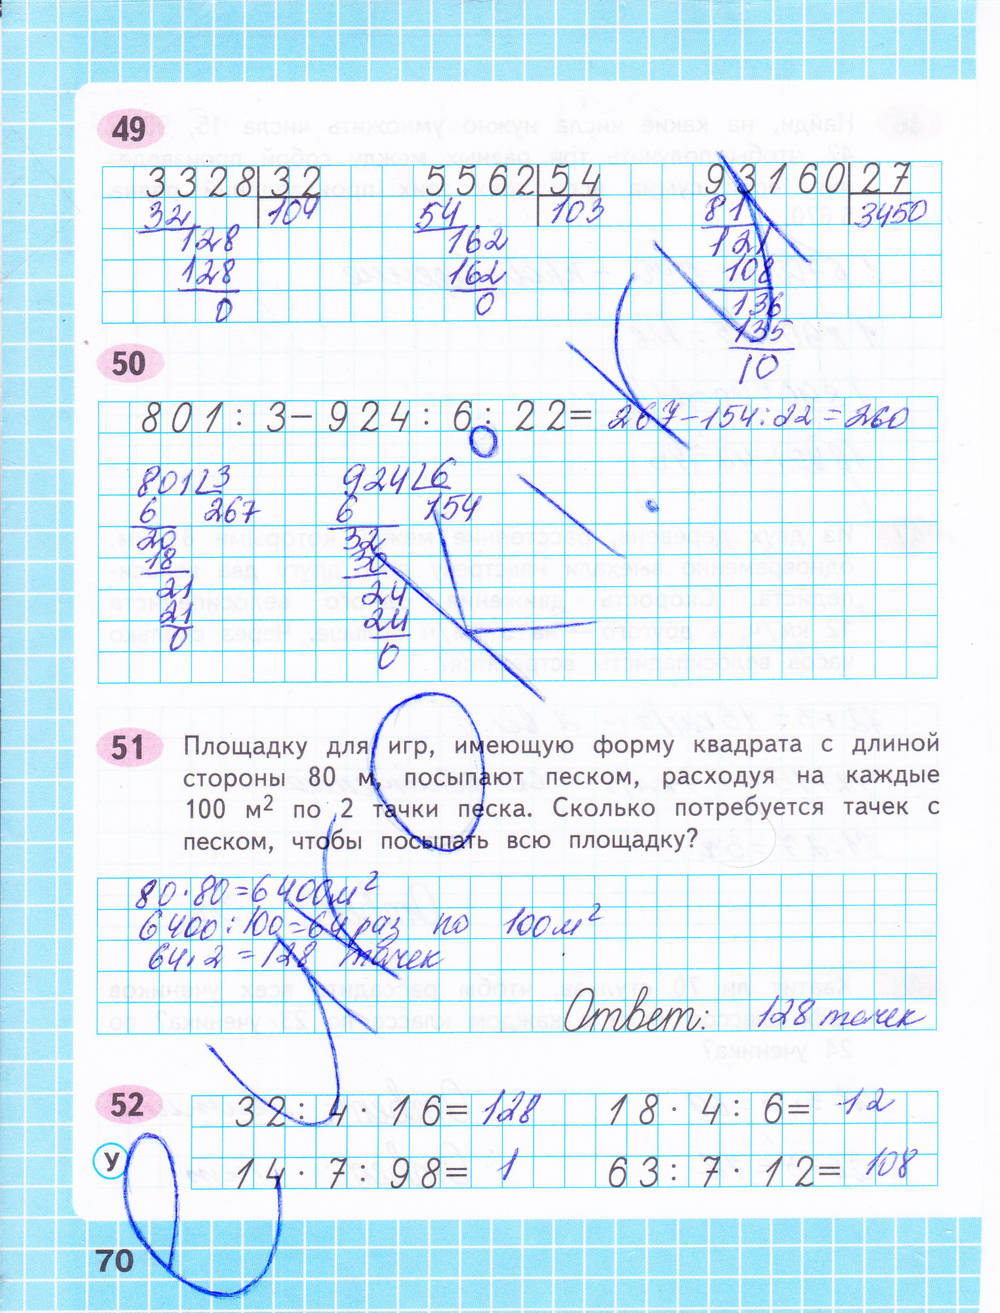 49
3328 32 5562 54 93160 27
32 104 54 103 81 3450
128 162 121
128 162 108
0 0 136
135
10
50
801 : 3 − 924 : 6 : 22 = 267 − 154 : 22 = 260
801 3 924 6
6 267 6 154
20 32
18 30
21 24
21 24
0 0
51 Площадку для игр, имеющую форму квадрата с длиной
стороны 80 м, посыпают песком, расходуя на каждые
100 м² по 2 тачки песка. Сколько потребуется тачек с
песком, чтобы посыпать всю площадку?
80 · 80 = 6400 м²
6400 : 100 = 64 раз по 100 м²
64 · 2 = 128 тачек
Ответ: 128 тачек
52 32 : 4 · 16 = 128 18 · 4 : 6 = 12
У 14 · 7 : 98 = 1 63 : 7 · 12 = 108
70